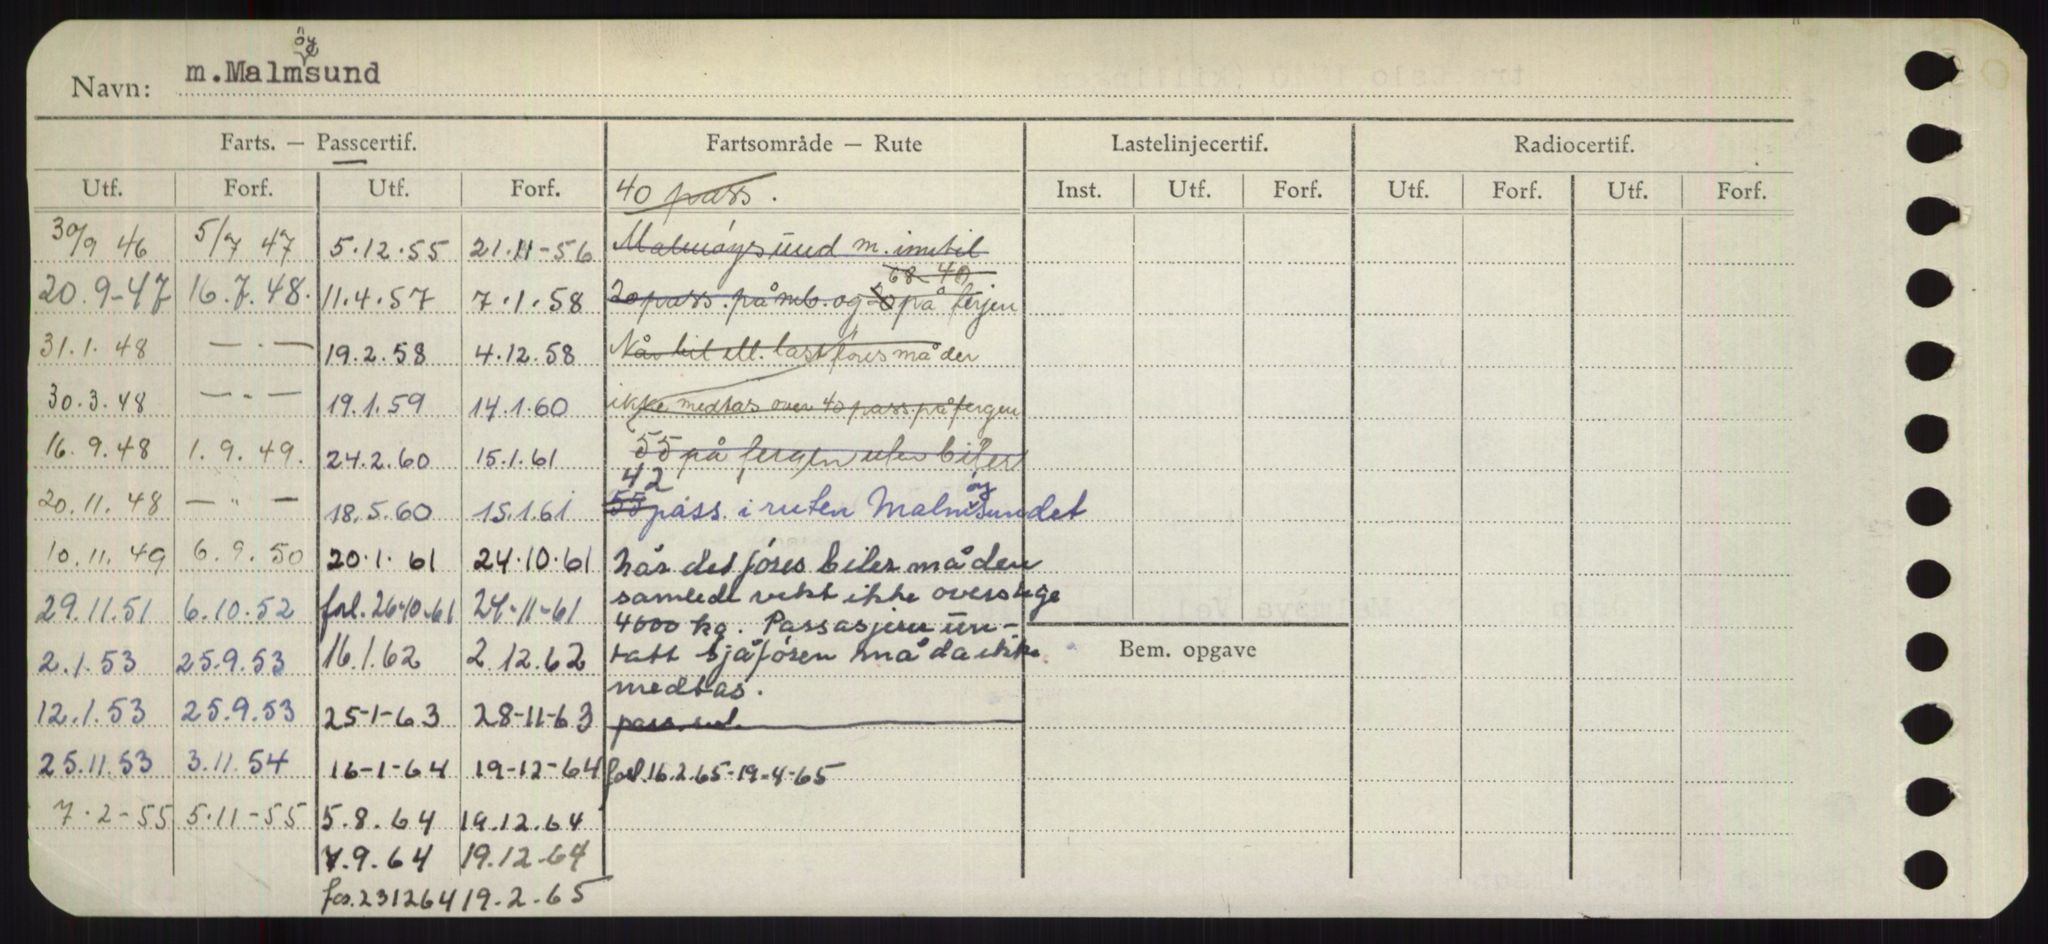 Navn: m.Malmöysund
Farts. — Passcertif. Fartsområde — Rute Lastelinjecertif. Radiocertif.
Utf. Forf. Utf. Forf. 40 pass. Inst. Utf. Forf. Utf. Forf. Utf. Forf.
30/9 46 5/7 47 5.12.55 21.11-56 Malmöysund m. inntil
68 40
20.9-47 16.7.48. 11.4.57 7.1.58 20 pass. på mb. og på ferjen
31.1.48 — . — 19.2.58 4.12.58 Når bil ell. last föres må der
30.3.48 — . — 19.1.59 14.1.60 ikke medtas over 40 pass. på fergen
16.9.48 1.9.49. 24.2.60 15.1.61 55 på fergen uten biler
42
20.11.48 — " — 18.5.60 15.1.61 55 pass. i ruten Malmöysundet
10.11.49 6.9.50 20.1.61 24.10.61 når det föres biler må den
29.11.51 6.10.52 forl. 26-10-61 24-11-61 samlede vekt ikke overstige
4000 kg. Passasjerer un-
2.1.53 25.9.53 16.1.62 2.12.62 tatt sjåfören må da ikke Bem. opgave
medtas.
12.1.53 25.9.53 25-1-63 28-11-63 pass.
25.11.53 3.11.54 16-1-64 19-12-64 forl. 16.2.65-19-4-65
7.2-55 5.11-55 5.8.64 19.12.64
7.9.64 19.12-64
for. 231264 19.2.65